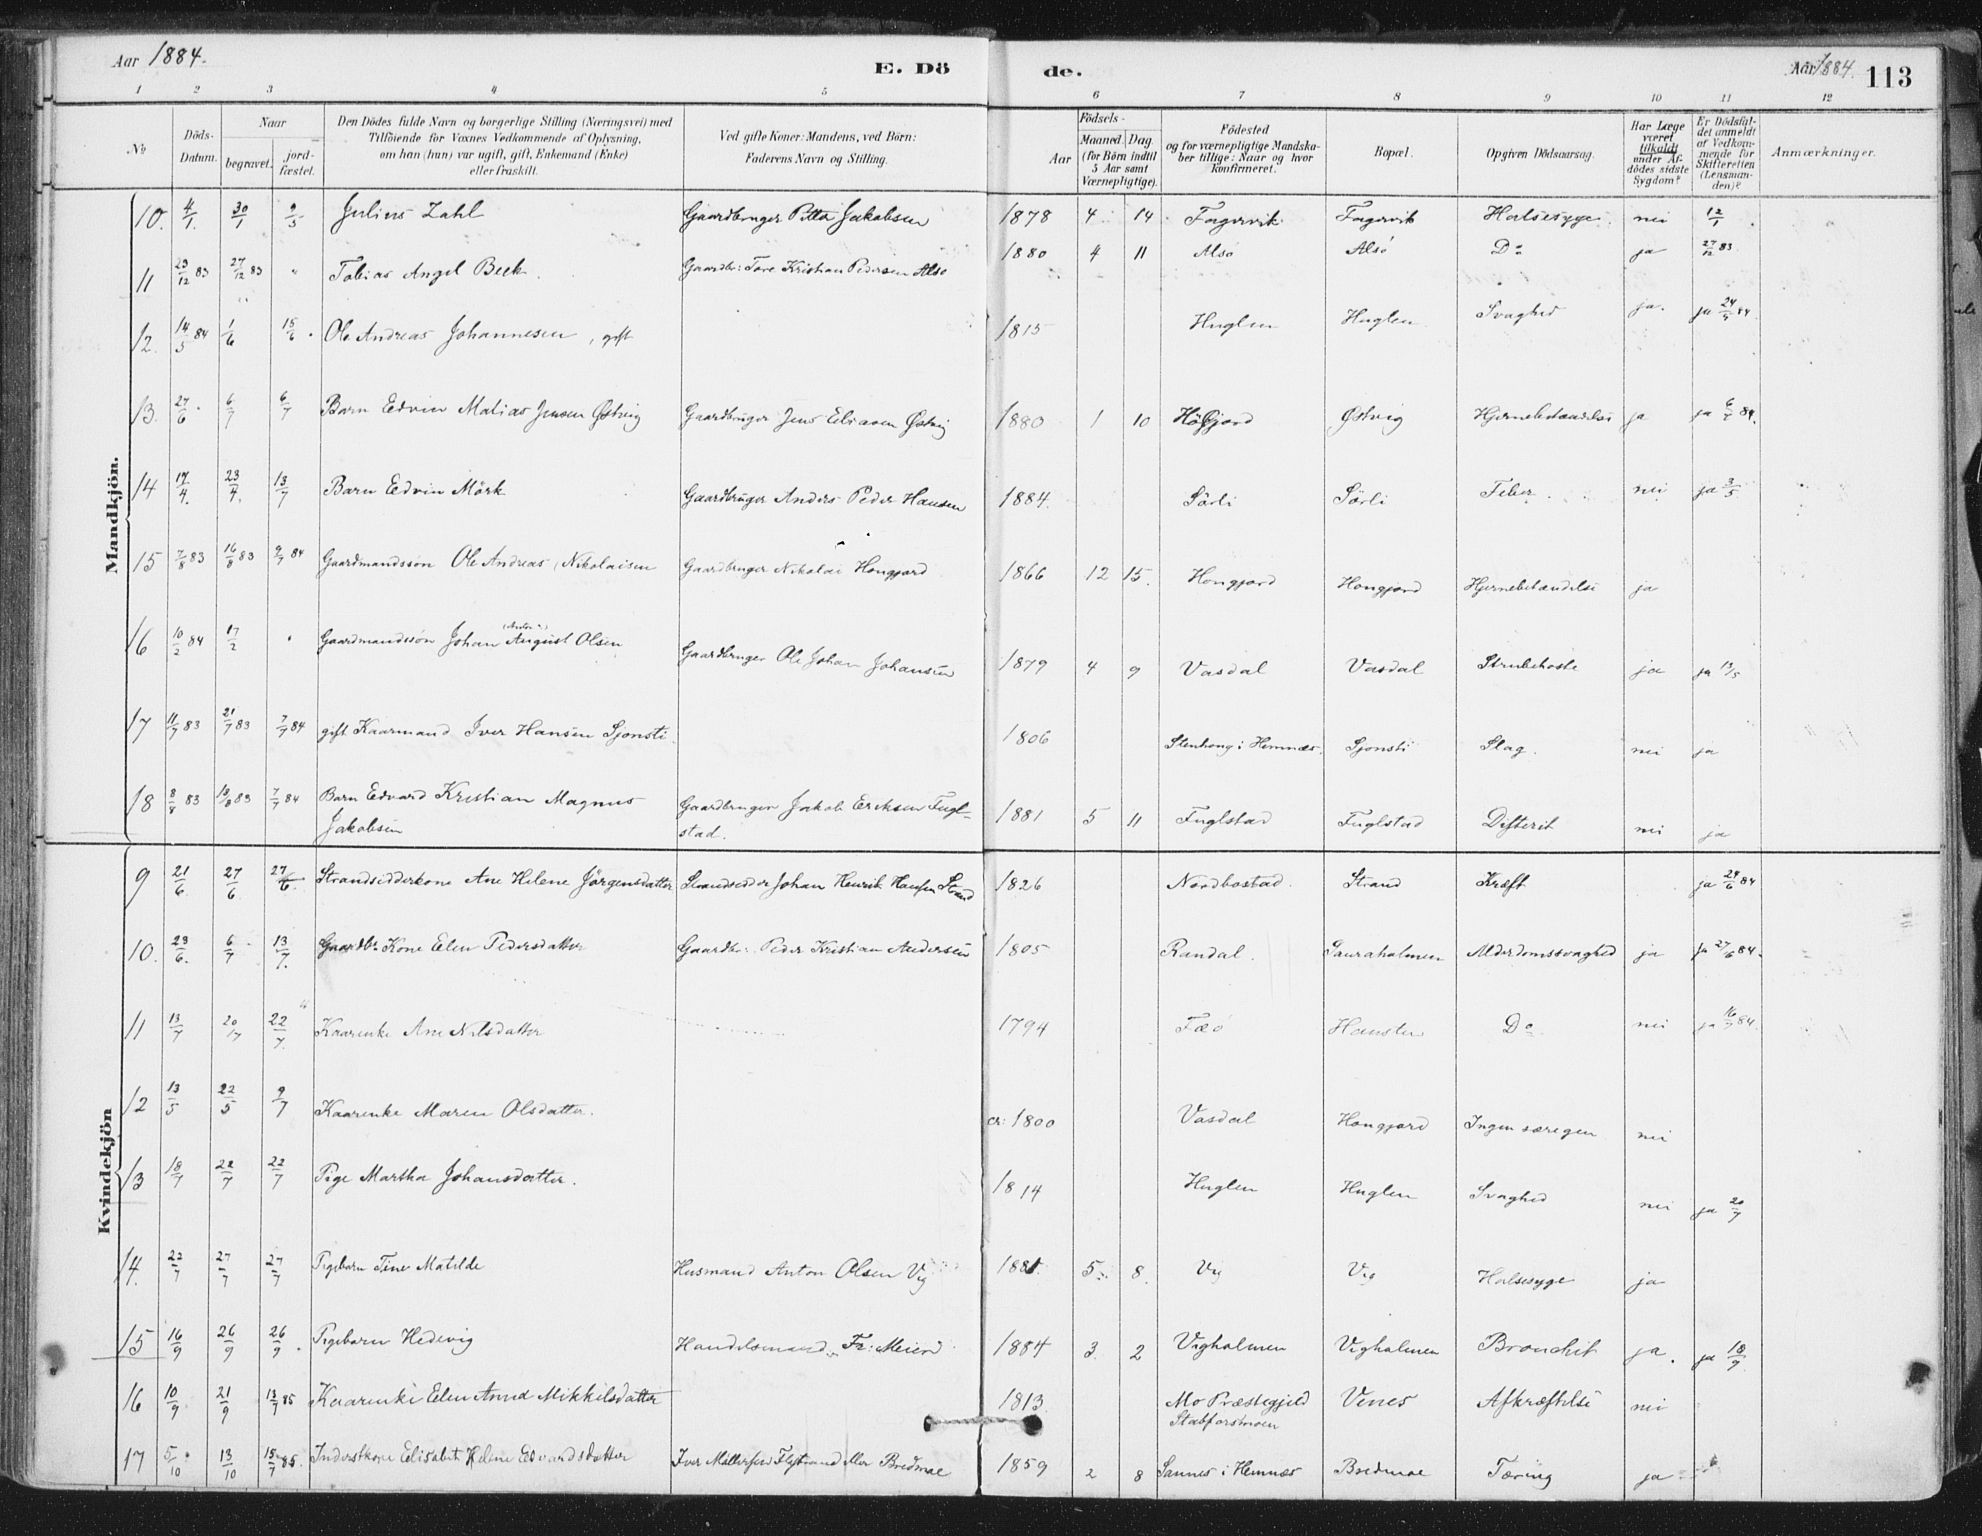 Aar 1884.
E. Dö de.
Aar 1884. 113
1 2 3 4 5 6 7 8 9 10 11 12
No
Döds-Datum.
Naar
begravet. jordfæstet.
Den Dödes fulde Navn og borgerlige Stilling (Næringsvei) med
Tilföiende for Voxnes Vedkommende af Oplysning,
om han (hun) var ugift, gift, Enkemand (Enke)
eller fraskilt.
Ved gifte Koner: Mandens, ved Börn:
Faderens Navn og Stilling.
Födsels-
Aar
Maaned. Dag
(for Börn indtil
5 Aar samt
Værnepligtige).
Födested
og for værnepligtige Mandska-
ber tillige: Naar og hvor
konfirmeret.
Bopæl.
Opgiven Dödsaarsag.
Har Læge
været
tilkaldt
under Af-
dödes sidste
Sygdom?
Er Dödsfal-
det anmeldt
af Vedkom-
mende for
Skifteretten
(Lensman-
den)?
Anmærkninger.
Mandkjön.
10. 4/1. 30/1 9/3 Julius Zahl Gaardbruger Petter Jakobsen 1878 4 14 Fagervik Fagervik Halsesyge nei 12/1
11 23/12 83 27/12 83 " Tobias Angel Beck. Gaardbr: Tore Kristian Pedersen Alsö 1880 4 11 Alsö Alsö Do ja 27/12 83
12. 14/5 84 1/6 15/6. Ole Andreas Johannesen, gift 1815 Huglen Huglen Svaghed ja. ja 24/5 84
13. 27/6. 6/7 6/7 Barn Edvin Matias Jensen Østvig Gaardbruger Jens Eliasen Østvig 1880 1 10 Høgfjord Østvig Hjernebetændelse ja ja 6/7 84.
14 17/4. 23/4. 13/7 Barn Edvin Mörk Gaardbruger Anders Peder Hansen 1884. Sörli Sörli Feber. nei ja 3/5
15 7/8 83 16/8 83 9/7 84 Gaardmandssön Ole Andreas Nikolaisen Gaardbruger Nikolai Hongfjord 1866 12 15. Hongfjord Hongfjord Hjernebetændelse ja
16 10/2 84 17/2 " Gaardmandssön Johan (Anton) August Olsen Gaardbruger Ole Johan Johansen 1879 4 9 Vasdal Vasdal Strubehoste ja ja 13/5
17 11/7 83 21/7 83 7/7 84 gift Kaarmand Iver Hansen Sjonsti 1806 Stenhong i Hemnæs. Sjonsti Slag. nei ja
18 8/8 83 13/8 83 7/7 84 Barn Edvard Kristian Magnus
Jakobsen Gaardbruger Jakob Eriksen Fugl-
stad. 1881 5 11 Fuglstad Fuglstad Difterit nei ja
Kvindekjön
9 21/6. 27/6 27/6. Strandsidderkone Ane Helene Jörgensdatter Strandsidder Johan Henrik Hansen Strand 1826 Nordbostad. Strand Kræft ja 24/6 84
10. 23/6. 6/7 13/7. Gaardbr. Kone Elen Pedersdatter Gaardbr: Peder Kristian Andersen 1805 Randal. Sauraholmen Alderdomssvaghed ja ja 27/6 84.
11 13/7 20/7 22/7. Kaarenke Ane Nilsdatter 1794 Fæö Do nei ja 16/7 84.
12 13/5 22/5 9/7 Kaarenke Maren Olsdatter. cr: 1800 Vasdal Hongfjord Ingen særegen nei
13 18/7 22/7 22/7 Pige Martha Johansdatter. 1814 Huglen Huglen Svaghed nei ja 20/7
14. 22/7 27/7 27/7 Pigebarn Tine Matilde Husmand Anton Olsen Vig 1881. 5. 8. Vig Vig Halsesyge ja
15 16/9 26/9 26/9. Pigebarn Hedevig Handelsmand Fr: Meier 1884 3. 2 Vigholmen Vigholmen Bronchit ja. ja 18/9.
16 10/9 21/9 13/7 85 Kaarenke Elen Anna Mikkelsdatter 1813. Mo Præstegjeld
Stabforsmoen Venes Afkræftelse nei
17 5/10 13/10 15/7 85. Inderstkone Elisabet Helene Edvardsdatter Iver Bredmoe 1859 2 8 Sannes i Hemnæs Bredmoe Tæring ja